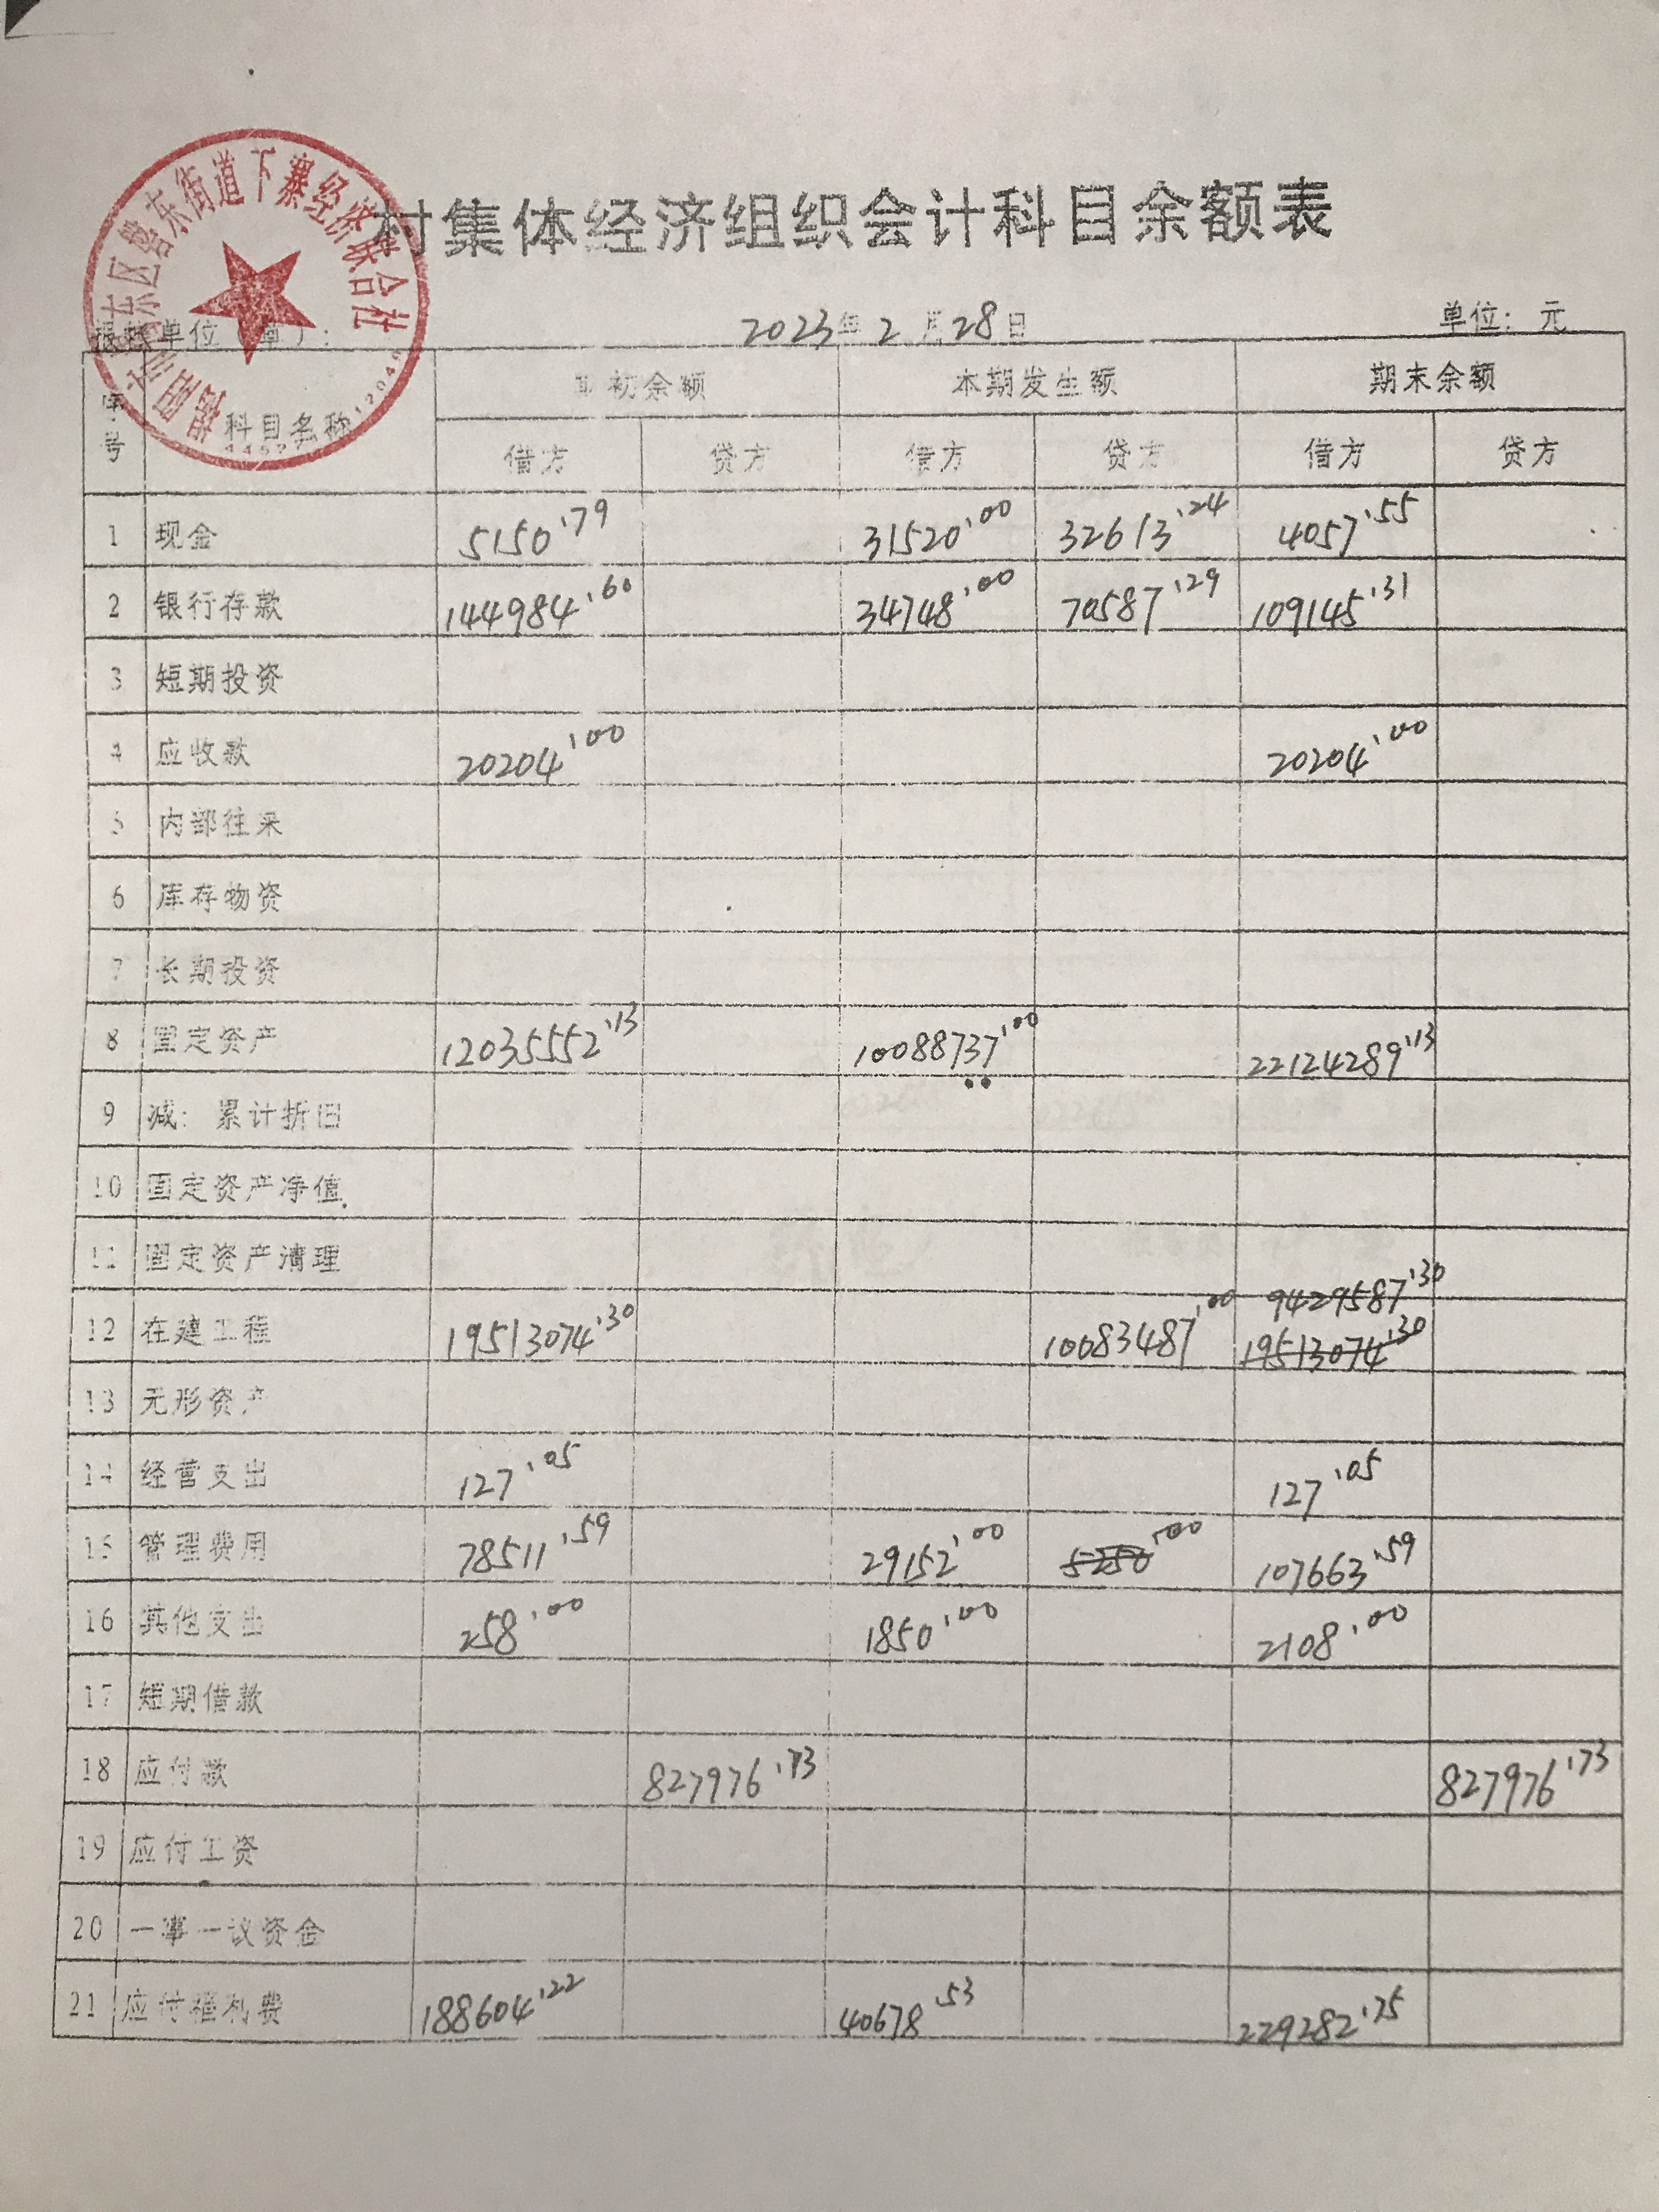 村集体经济组织会计科目余额表
揭阳市揭东区磐东街道下寨经济联合社
填报单位(章): 2023年2月28日 单位: 元
序号 科目名称 期初余额 本期发生额 期末余额
借方 贷方 借方 贷方 借方 贷方
1 现金 5150.79 31520.00 32613.24 4057.55
2 银行存款 144984.60 34748.00 70587.29 109145.31
3 短期投资
4 应收款 20204.00 20204.00
5 内部往来
6 库存物资
7 长期投资
8 固定资产 12035552.13 10088737.00 22124289.13
9 减: 累计折旧
10 固定资产净值
11 固定资产清理
12 在建工程 19513074.30 10083487.00 9429587.30 19513074.30
13 无形资产
14 经营支出 127.05 127.05
15 管理费用 78511.59 29152.00 5250.00 107663.59
16 其他支出 258.00 1850.00 2108.00
17 短期借款
18 应付款 827976.73 827976.73
19 应付工资
20 一事一议资金
21 应付福利费 188604.22 40678.53 229282.75